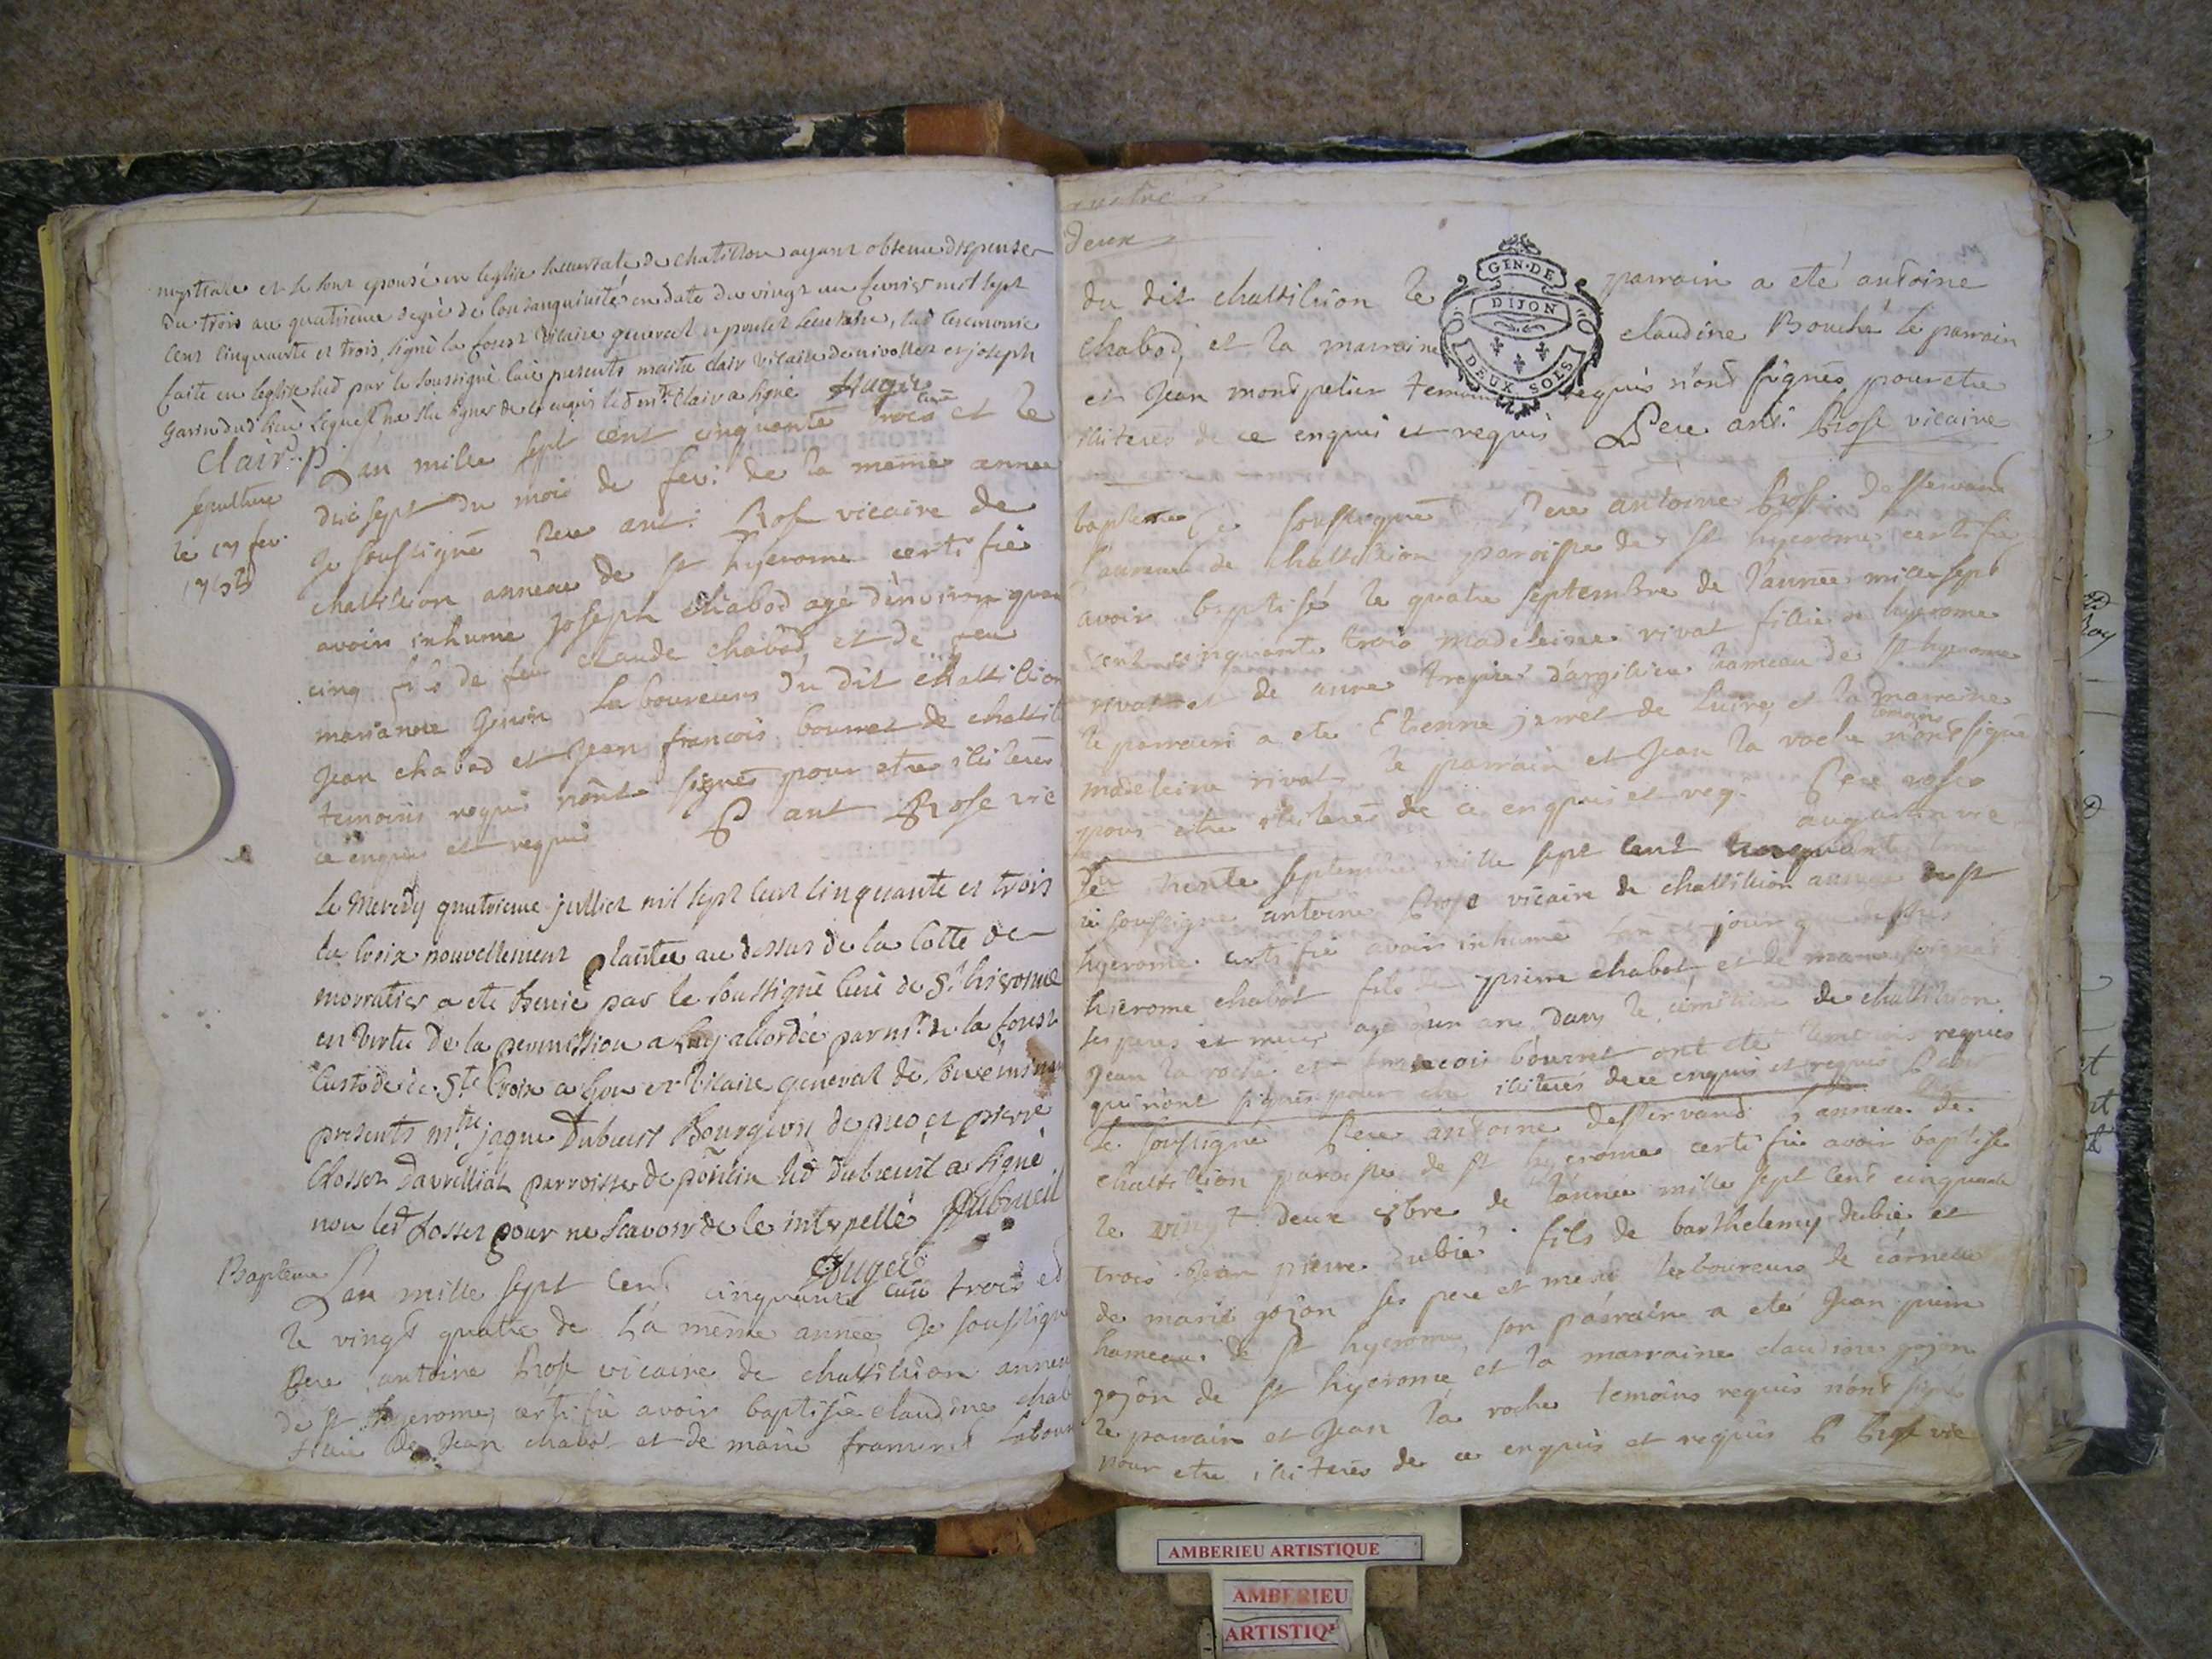 nuptiale et se sont épousé en leglise succursale de chatillon ayant obtenu dispense
du trois au quatrieme degré de consanguinité en date du vingt un fevrier mil sept
cent cinquante et trois, signé la forest vicaire general secretaire, lad ceremonie
faite en leglise sud par le soussigné curé presents maitre clair vicaire de nivollet et joseph
garin dud lieu lequel na sçu signer de ce enquis led mtre clair a signé Augier
Clair p. curé
sepulture
le 17 fev.
1753
Lan mille sept cent cinquante trois et le
dix sept du mois de fev: de la meme annee
Je soussigné Pere ant: Rose vicaire de
chattillion annexe de st hyerome certifie
avoir inhumé Joseph Chabod agé d'environ quar
cinq fils de feu claude chabod, et de feu
marianne Genin, laboureurs du dit chattillion
Jean chabod et Jean françois bourret de chattil
temoins requis n'ont signés pour etre iliterés
ce enquis et requis P ant Rose vic
Le Mecredy quatrieme juilliet mil sept cent cinquante et trois
la croix nouvellement plantée au dessus de la cotte de
morratier a eté benie par le soussigné curé de St hierome
en vertu de la permission a luy accordée par mr de la forest
custode de Ste Croix a lyon et vicaire general de son éminen
presents mtre jaque Dubreist Bourgeois de et pierre
Closset Davrilliat parroisse de poncin led Dubreuil a signé
non led Losset pour ne scavoir de le interpellé Dubrueil
Augier
curé
Bapteme
Lan mille sept cent cinquante trois et
le vingt quatre de la même année, Je soussigné
Pere antoine Rose vicaire de chattillion annex
de st hyerome, certifie avoir baptisée claudine chab
fillie de Jean chabot et de marie framinet labour
quatre
deux
du dit chattillion le parrain a eté antoine
chabod, et la marraine claudine Bouché le parrain
et Jean montpelier temoins requis n'ont signés pour etre
iliterés de ce enquis et requis Pere ant: Rose vicaire
GEN·DE
DIJON
DEUX SOLS
bapteme Je soussigné Pere antoine Rose desservant
l'annexe de chattillion paroisse de st hyerome certifie
avoir baptisé le quatre septembre de l'année mille sept
cent cinquante trois madeleine rivat fillie de hyerome
rivat et de anne d'argilieu hameau de st hyerome
le parrain a eté Etienne jarret de luire, et la marraine
madeleine rivat, le parrain et Jean la roche temoins n'ont signé
pour etre iliterés de ce enquis et req. Pere rose
augustin vic
Le trente septembre mille sept cent cinquante trois
Je soussigné antoine Rose vicaire de chattillion annexe de st
hyerome certifie avoir inhumé l'an et jour que dessus
hierome chabot fils de pierre chabot, et de marie
ses peres et meres agé d'un an dans le cimetiere de chattillion
Jean la roche et francois bourret ont eté temoins requis
qui n'ont signés pour etre iliterés de ce enquis et requis P Rose
vic
Le soussigné Pere antoine desservand l'annexe de
chattillion paroisse de st hyerome certifie avoir baptisé
le vingt deux 8bre de l'année mille sept cent cinquante
trois Jean pierre dubié fils de barthelemy dubié et
de marie gojon ses pere et mere laboureurs de cornelle
hameau de st hyerome, son parrain a eté Jean pierre
gojon de st hyerome et la marraine claudine gojon
le parrain et Jean la roche temoins requis n'ont signés
pour etre iliterés de ce enquis et requis P Rose vic
AMBERIEU ARTISTIQUE
AMBERIEU
ARTISTIQ